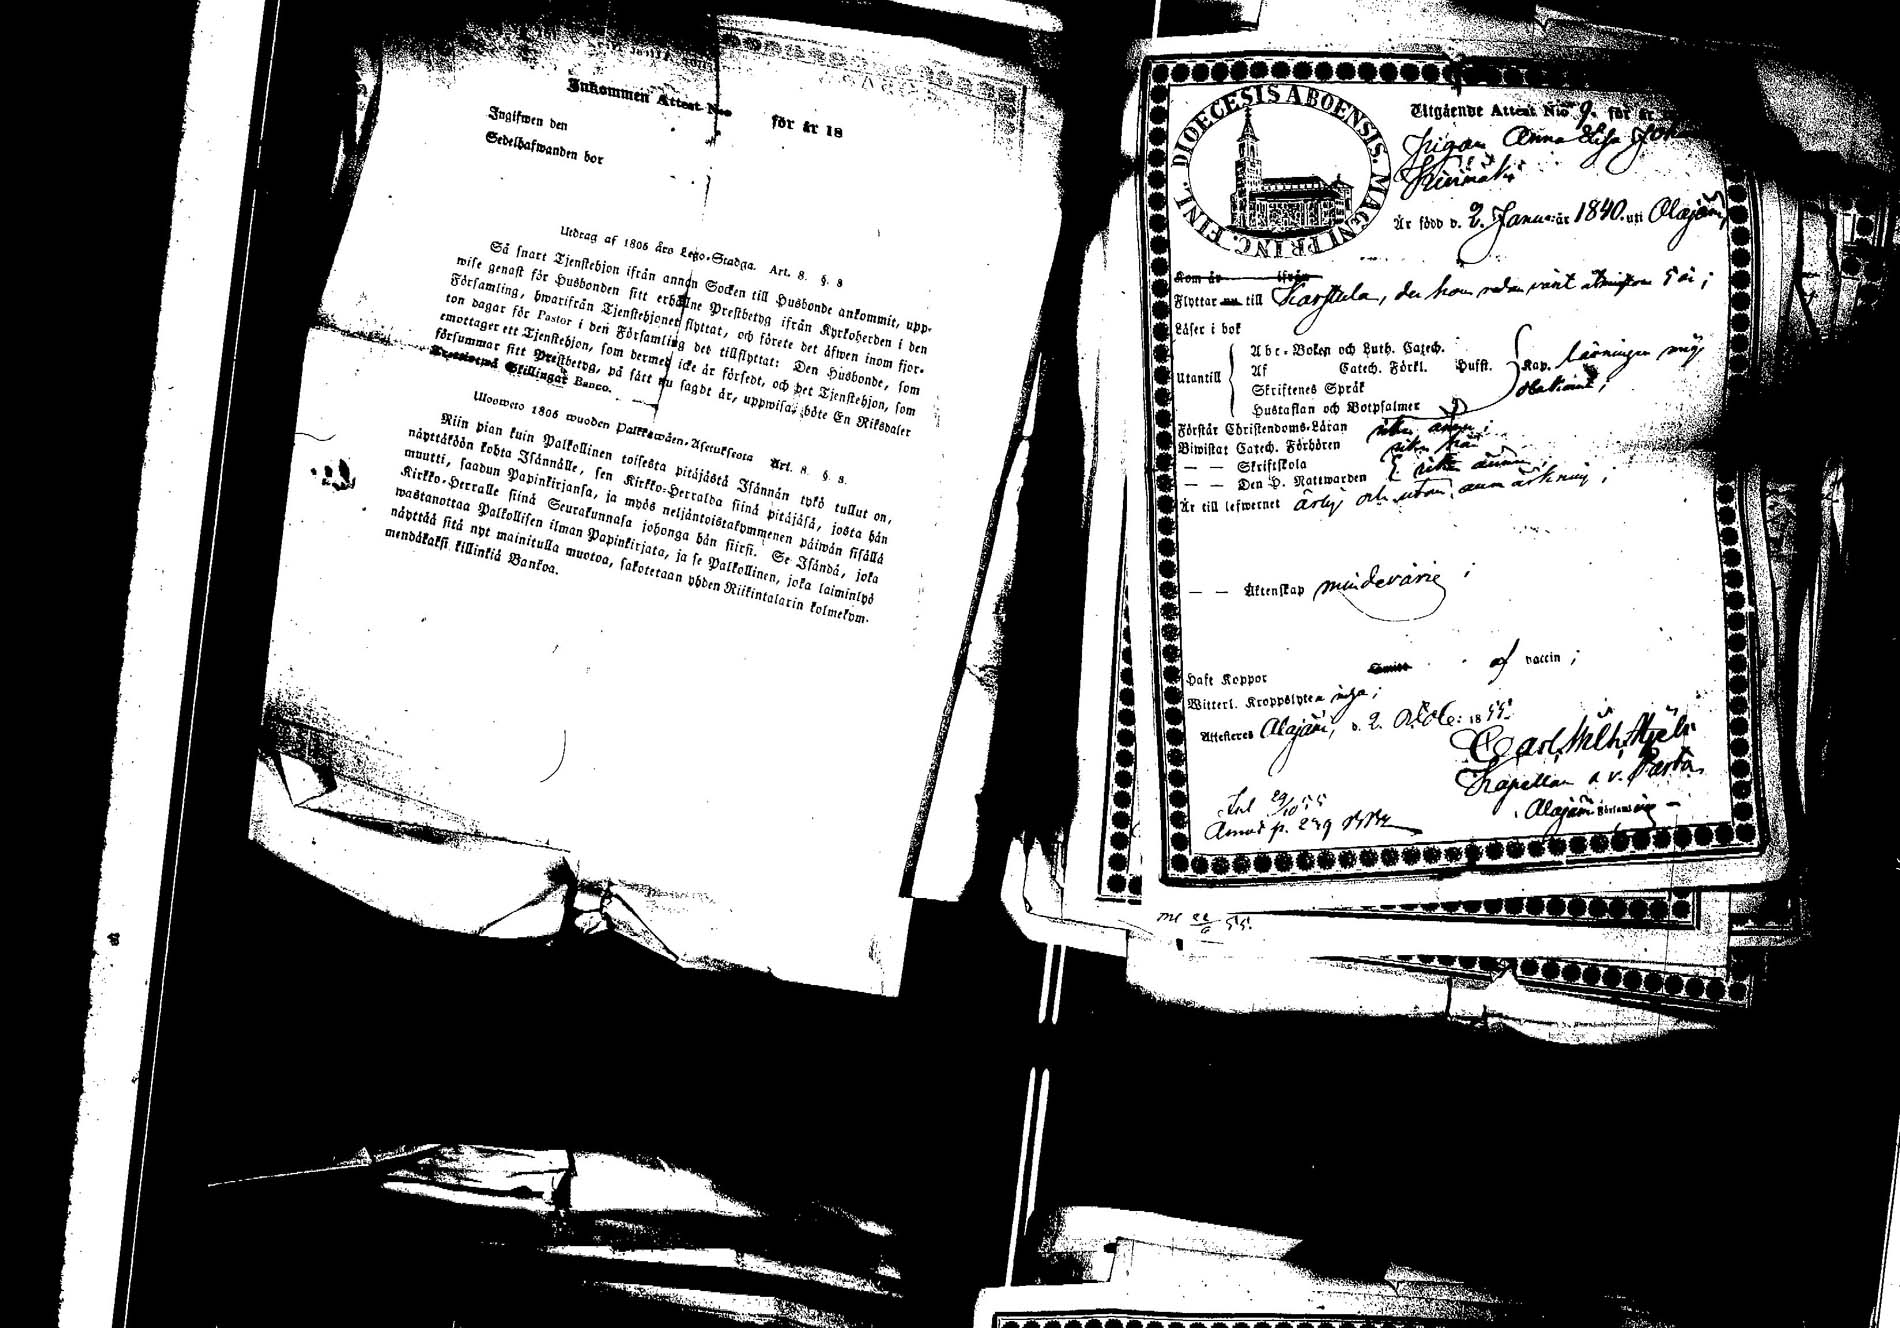 Inkommen Attest N:o för år 18
Ingifwen den
Sedelhafwanden bor
Utdrag af 1805 års Lego-Stadga. Art. 8. §. 8
Så snart Tjenstehjon ifrån annan Socken till Husbonde ankommit, upp-
wise genast för Husbonden sitt erhållne Prestbetyg ifrån Kyrkoherden i den
Församling, hwarifrån Tjenstehjonet flyttat, och förete det äfwen inom fjor-
ton dagar för Pastor i den Församling det tillflyttat: Den Husbonde, som
emottager ett Tjenstehjon, som dermed icke är försedt, och det Tjenstehjon, som
försummar sitt Prestbetyg, på sätt nu sagdt är, uppwisa, böte En Riksdaler
Skillingar Banco.
Wuoweto 1805 wuoden Palkkawäen-Asetuksesta Art. 8. §. 8.
Niin pian kuin Palkollinen toisesta pitäjästä Isännän tykö tullut on,
näyttäköön kohta Isännälle, sen Kirkko-Herralda siinä pitäjäsä, josta hän
muutti, saadun Papinkirjansa, ja myös neljäntoistakymmenen päiwän sisällä
Kirkko-Herralle siinä Seurakunnasa johonga hän siirsi. Se Isändä, joka
wastanottaa Palkollisen ilman Papinkirjata, ja se Palkollinen, joka laiminlyö
näyttää sitä nyt mainitulla muotoa, sakotetaan yhden Riikintalarin kolmekym-
mendäkaksi killinkiä Bankoa.
DIOECESIS ABOENSIS. MAGNI PRINC. FINL.
Utgående Attest N:o 9. för år
Pigan Anna Lisa
Är född d. 2. Janua: år 1840. uti Alajärvi
Kom år ifrån
Flyttar nu till Karstula, der hon redan varit 5 år;
Läser i bok
Abc-Boken och Luth. Catech.
Utantill Af Catech. Förkl. Husst. Kap. läsningen
Skriftenes Språk
Hustaflan och Botpsalmer
Förstår Christendoms-Läran
Biwistat Catech. Förhören
— — Skriftskola
— — Den H. Nattwarden
Är till lefwernet ärlig och utan anmärkning;
— — Äktenskap minderårig;
Haft Koppor af vaccin;
Witterl. Kroppslyten inga;
Attesteras Alajärvi, d. 2. Octob: 1855.
Carl Wilh.
Kapellan
Alajärvi Församling
Inl 29/10 55
p. 279
Inl 22/6 55.